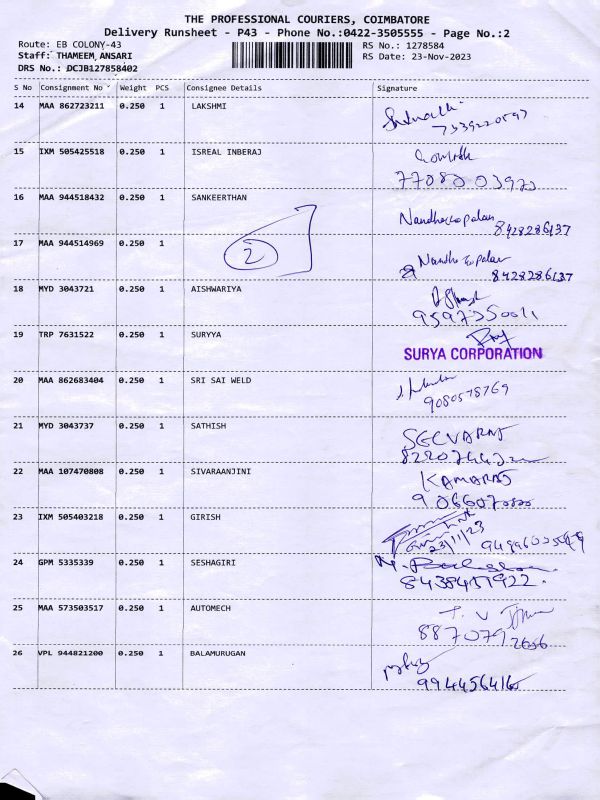 THE PROFESSIONAL COURIERS, COIMBATORE
Delivery Runsheet - P43 - Phone No.:0422-3505555 - Page No.:2
Route: EB COLONY-43 RS No.: 1278584
Staff: THAMEEM ANSARI RS Date: 23-Nov-2023
DRS No.: DCJB127858402
S No Consignment No Weight PCS Consignee Details Signature
14 MAA 862723211 0.250 1 LAKSHMI
15 IXM 505425518 0.250 1 ISREAL INBERAJ
16 MAA 944518432 0.250 1 SANKEERTHAN Nandhagopalan
8428286137
17 MAA 944514969 0.250 1 2 Nandhagopalan
8428286137
18 MYD 3043721 0.250 1 AISHWARIYA
19 TRP 7631522 0.250 1 SURYYA
SURYA CORPORATION
20 MAA 862683404 0.250 1 SRI SAI WELD
9080578769
21 MYD 3043737 0.250 1 SATHISH SELVARAJ
22 MAA 107470808 0.250 1 SIVARAANJINI KAMARAJ
23 IXM 505403218 0.250 1 GIRISH
23/11/23
24 GPM 5335339 0.250 1 SESHAGIRI
25 MAA 573503517 0.250 1 AUTOMECH
8870792666
26 VPL 944821200 0.250 1 BALAMURUGAN